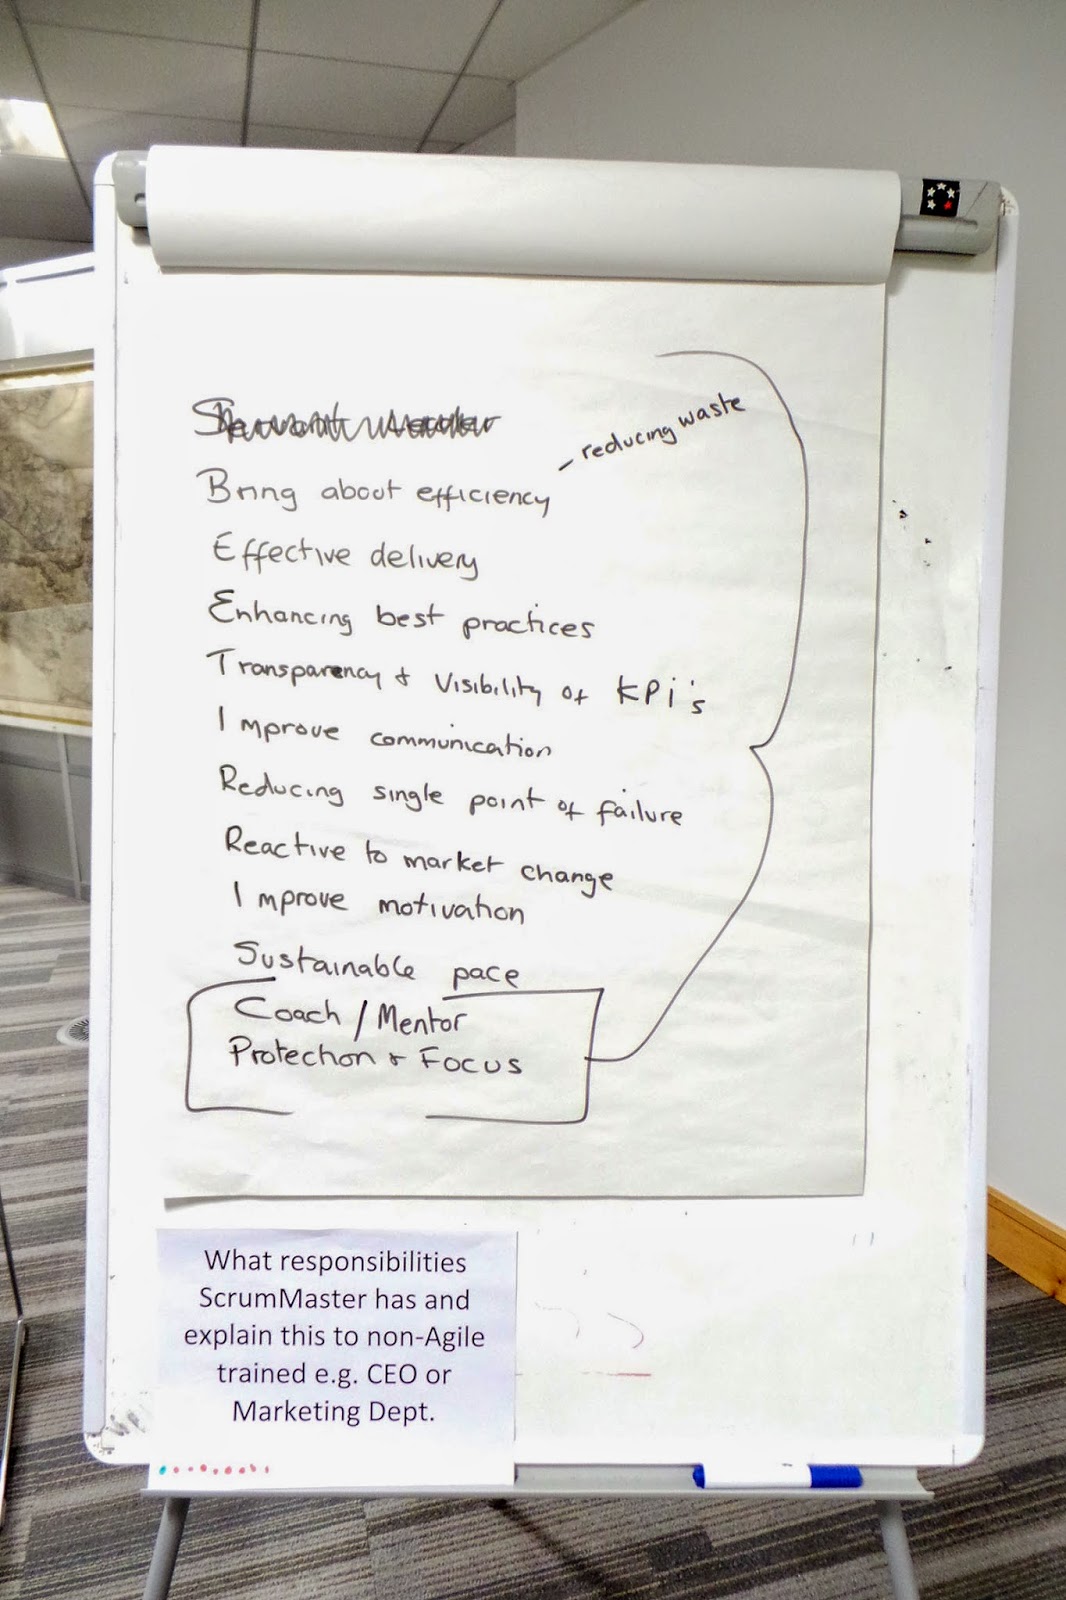 reducing waste
Bring about efficiency
Effective delivery
Enhancing best practices
Transparency + Visibility of KPi's
Improve communication
Reducing single point of failure
Reactive to market change
Improve motivation
Sustainable pace
Coach / Mentor
Protection + Focus
What responsibilities
ScrumMaster has and
explain this to non-Agile
trained e.g. CEO or
Marketing Dept.